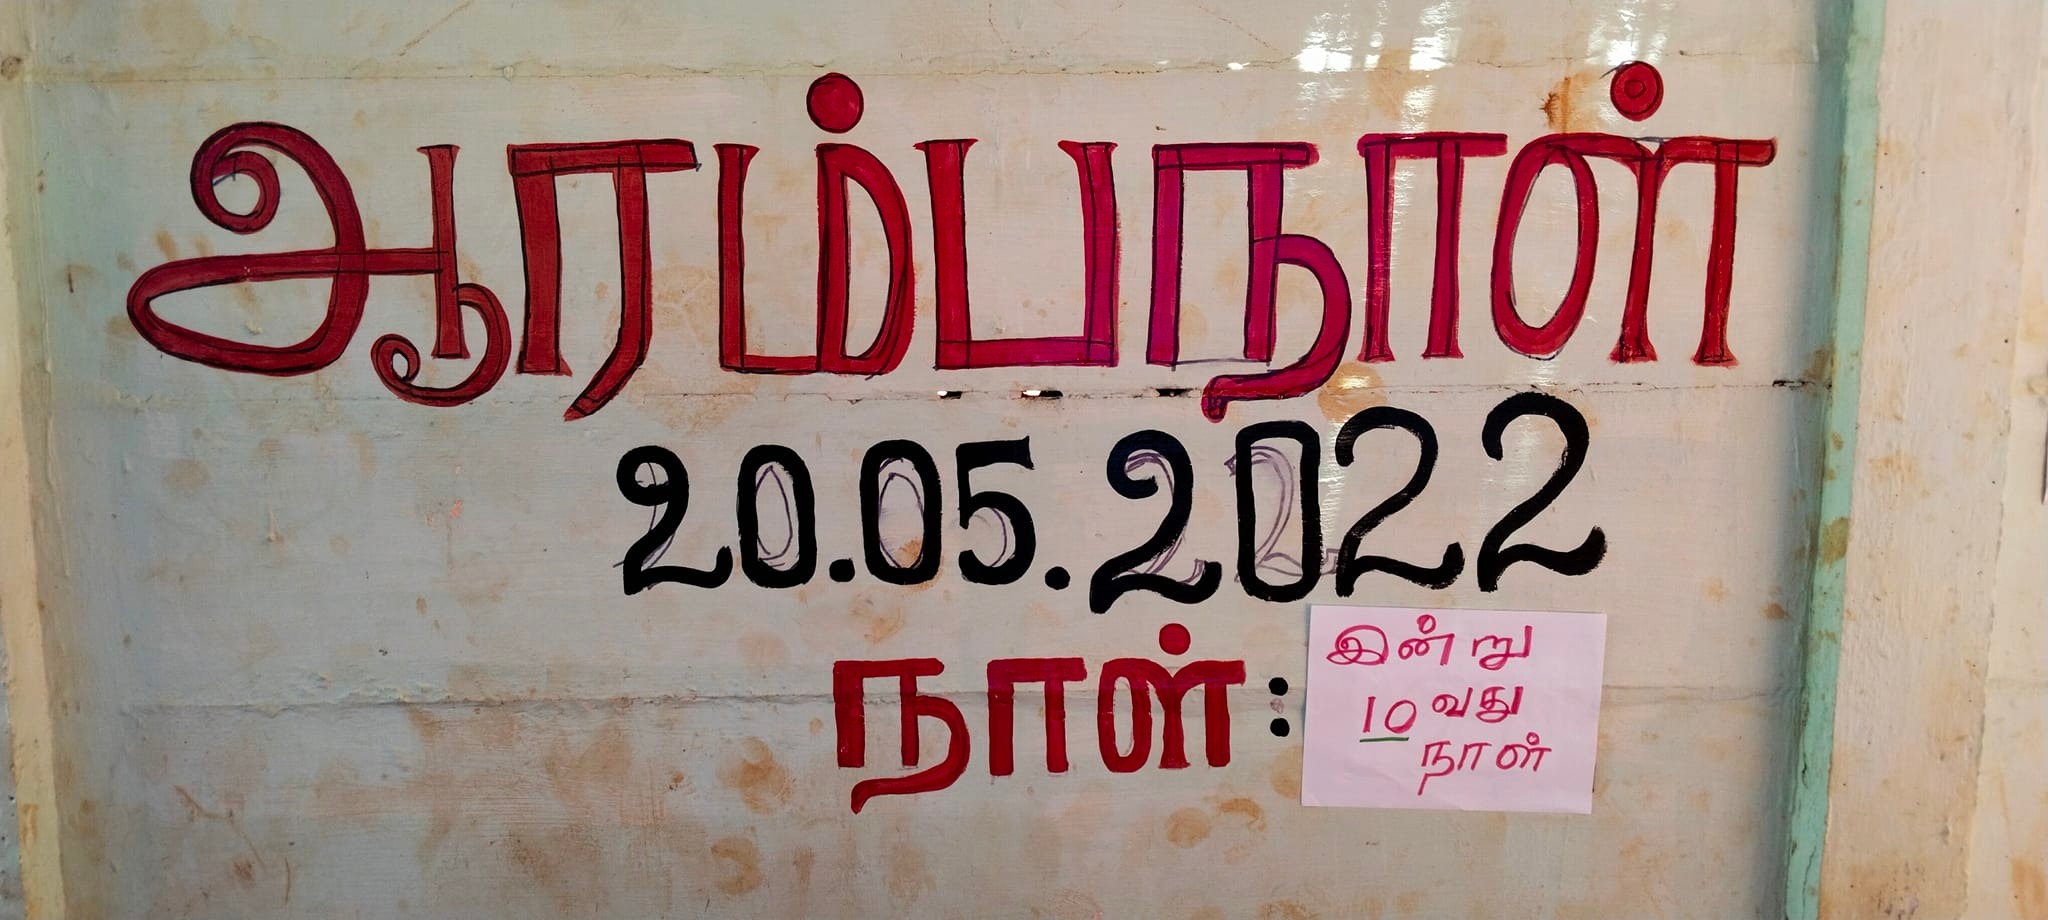 ஆரம்பநாள்
20.05.2022
நாள் :
இன்று
10வது
நாள்